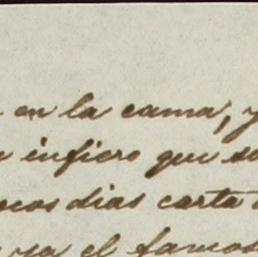 en la cama, y
infiero que
cos dias carta
ya el famos